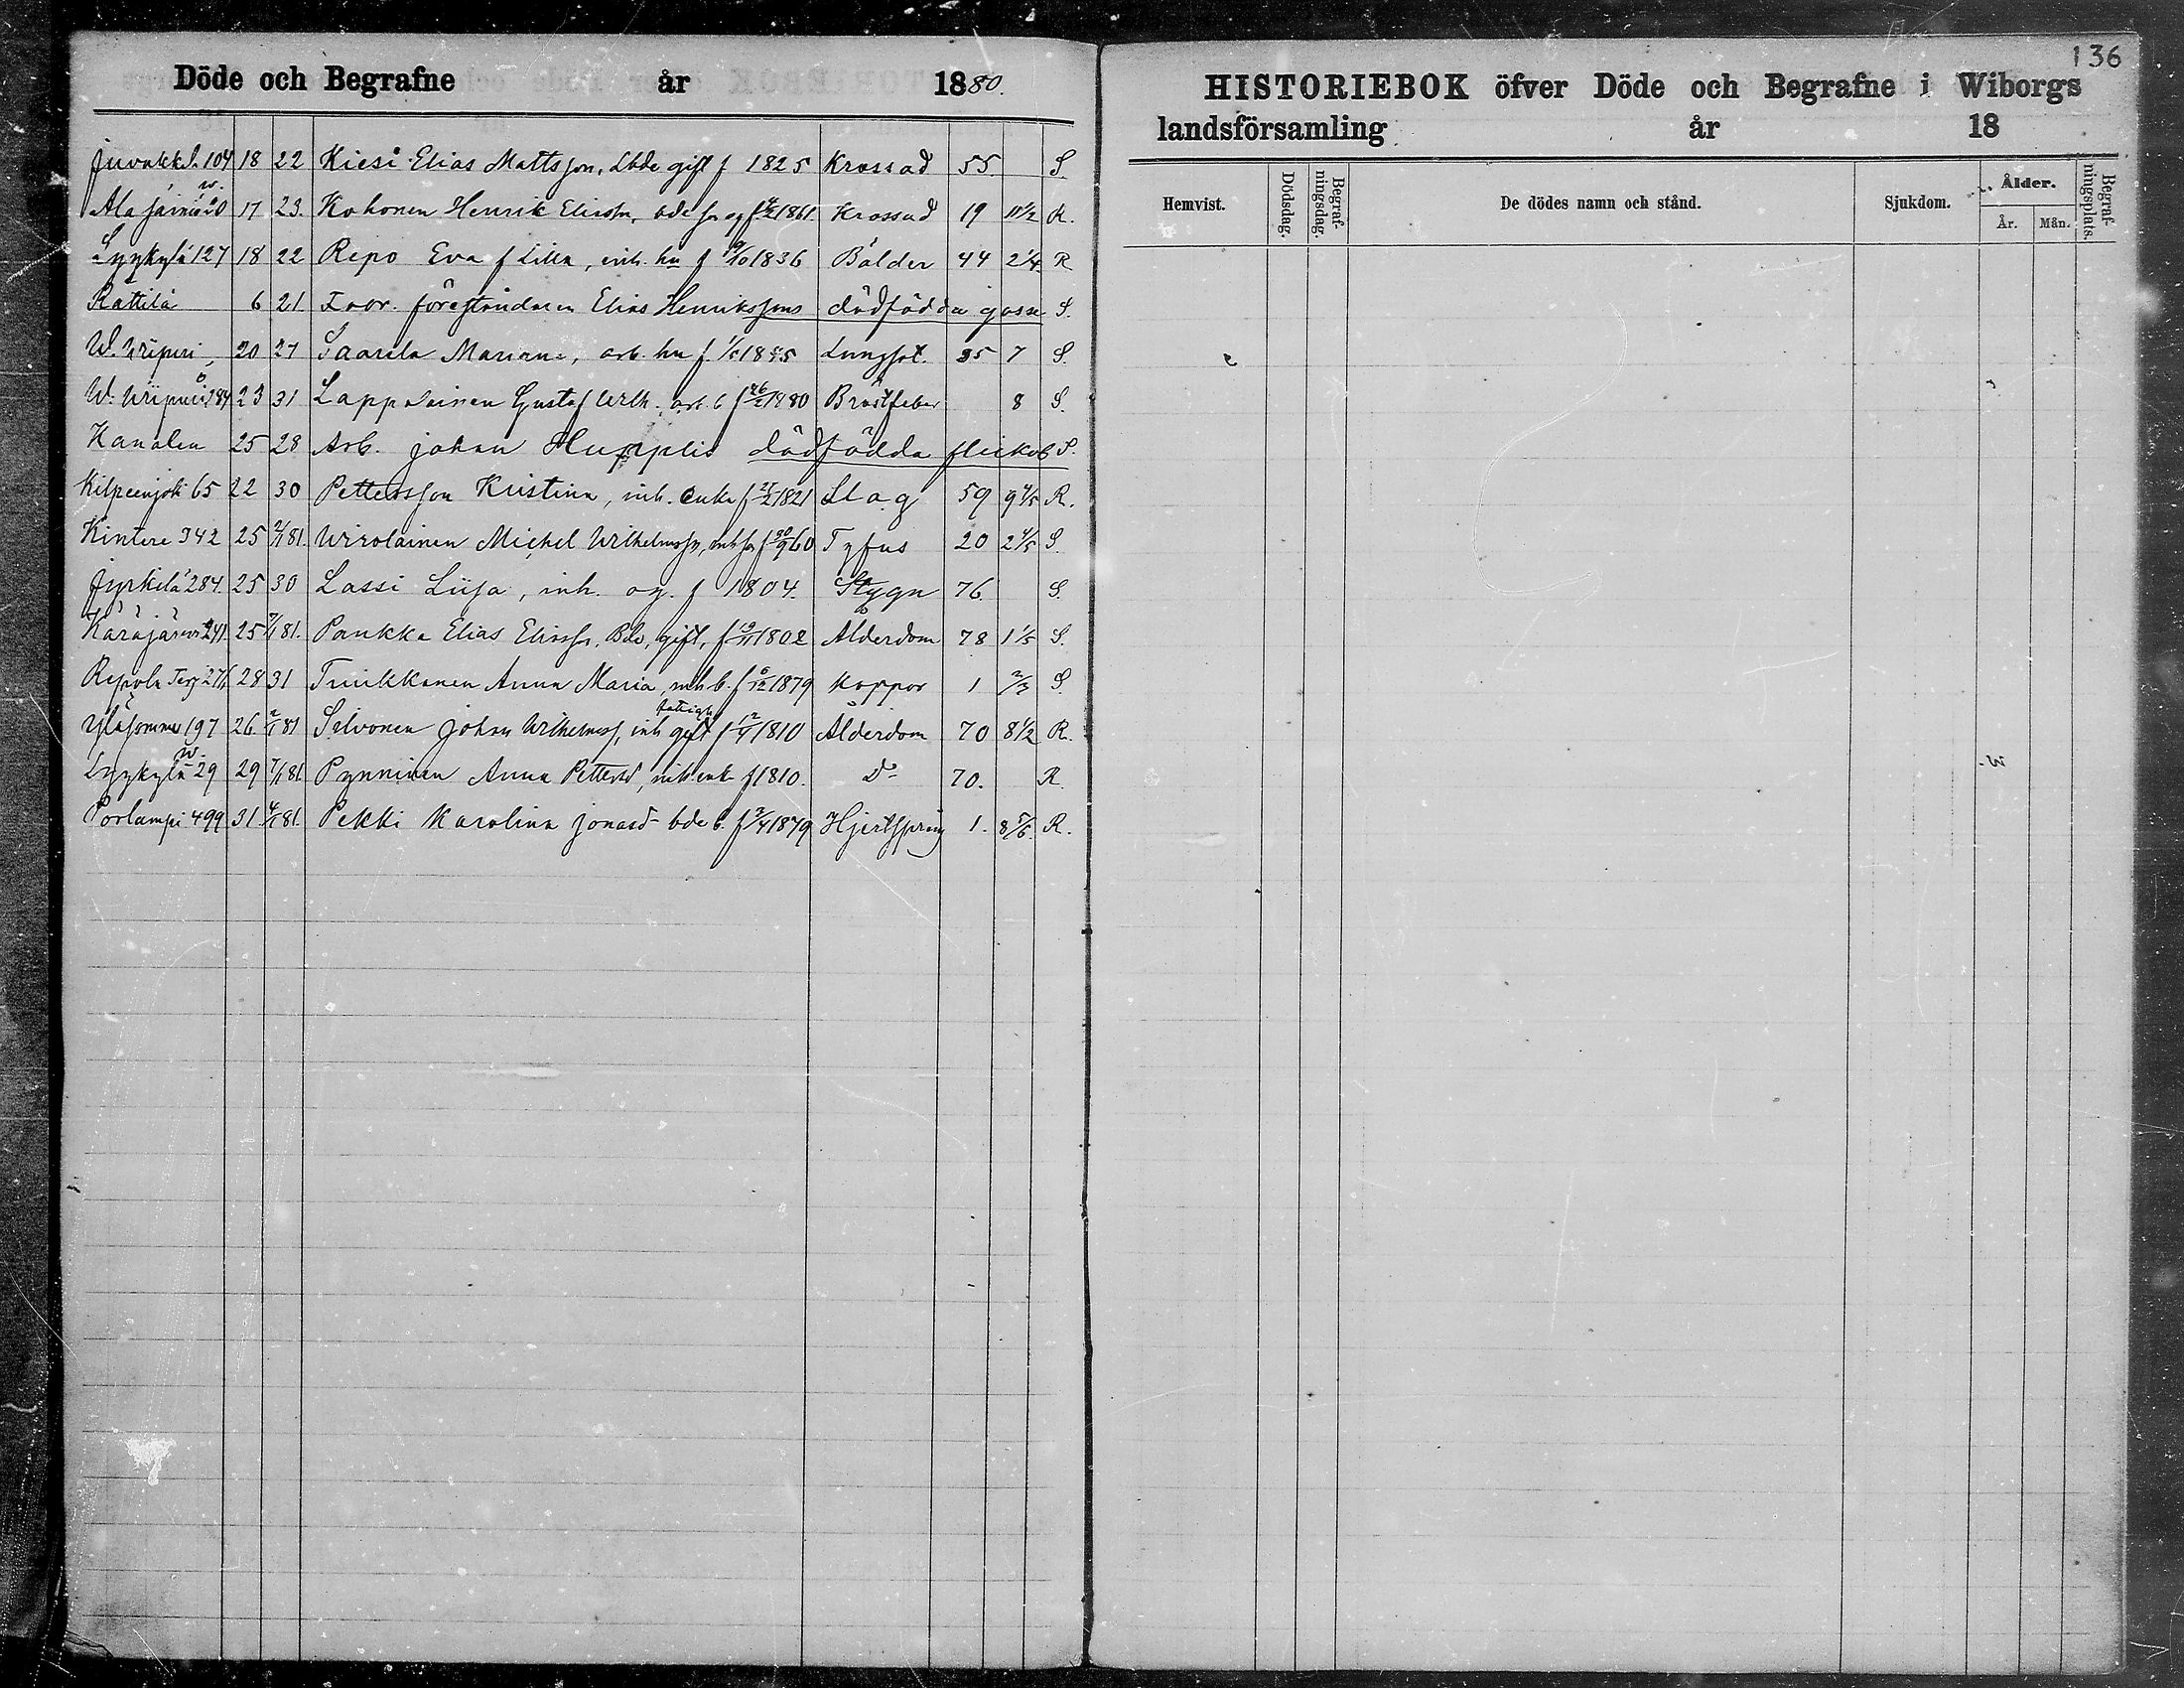 Döde och Begrafne år 1880.
Juvakk. 104 18 22 Kiesi Elias Mattsson, Lbde gift f 1825 Krossad 55 S.
Ala Säiniö 20 17 23. Kohonen Henrik Eliass., bde son og f 1861. Krossad 19 11 1/2 R.
w.
Lyykylä 127 18 22 Repo Eva f Lilla, inh. hu f 9/10 1836 Bölder 44 2 1/4 R
Rättilä 6 21. Förestånda­ren Elias Henrikssons dödfödda gosse S.
W. Wiipuri 20 27 Saarela Mariana, arb. hu f Lungsot. 35 7 S.
W. Wiipuri 284 23 31 Lappalainen Gustaf Wilh. arb. b f 26/2 1880 Bröstfeber 8 S.
Kanalen 25 28 Arb. Johan dödfödda flickeb S.
Kilpeenjoki 65 22 30 Pettersson Kristina, inh. enka f 1821 Slag 59 9 4/5 R.
Kintere 342 25 2/1 81. Wirolainen Michel Wilhelmss., inh son f 30/9 60 Tyfus 20 2 4/5 S.
Jyrkilä 284. 25 30 Lassi Liisa, inh. og. f 1804. Stygn 76. S.
Käräjärvi 241. 25 7/1 81. Paukka Elias Eliass. Bde, gift, f 19/11 1802 Ålderdom 78 1 1/5 S.
Repola Terj 276 28 31 Tuukkanen Anna Maria, inh b. f 6/12 1879 Koppor 1 2/3 S.
Yläsommе 197 26. 2/1 81 Silvonen Johan Wilhelmss, inh fattigh gift f 12/4 1810 Ålderdom 70 8 1/2 R.
w.
Lyykylä 29 29 7/1 81. Pynninen Anna Pettersd, inh enk f 1810. Do 70. R.
Porlampi 499 31 4/1 81. Pekki Karolina Jonasd bde b. f 2/4 1879 Hjertspräng 1. 8 5/6. R.
136
HISTORIEBOK öfver Döde och Begrafne i Wiborgs
landsförsamling år 18
Hemvist. Dödsdag. Begraf-ningsdag. De dödes namn och stånd. Sjukdom. Ålder. Begraf-ningsplats.
År. Mån.